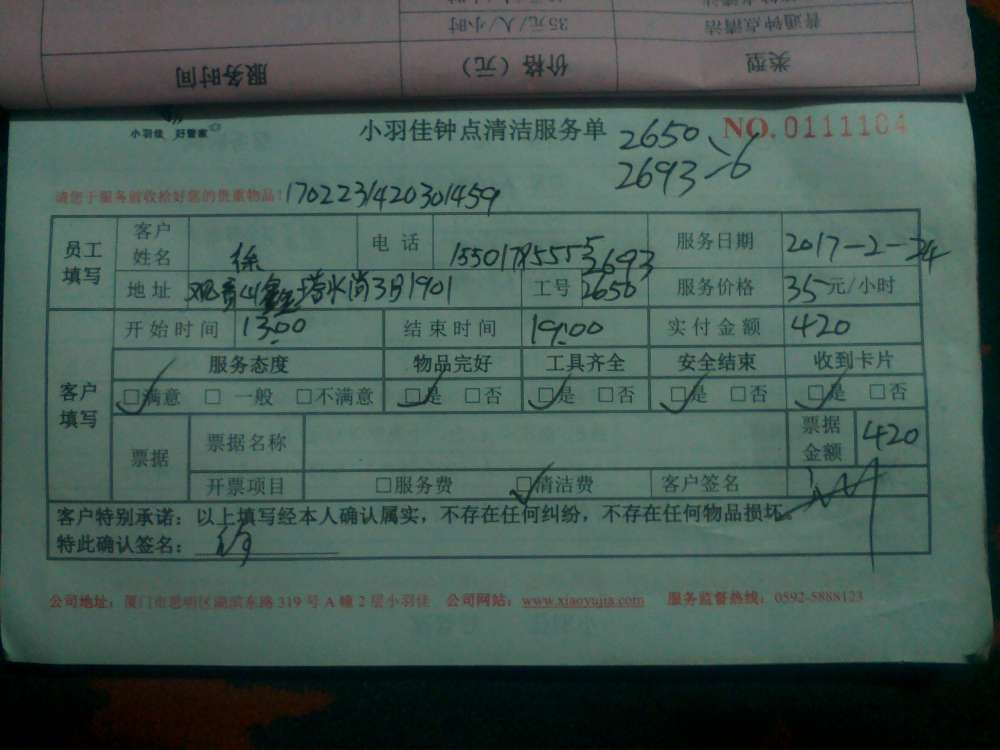 普通钟点清洁 35元/人/小时
类型 价格（元） 服务时间
小羽佳 好管家
小羽佳钟点清洁服务单 NO.0111104
2650
2693 6
请您于服务前收拾好您的贵重物品! 1702231420301459
员工填写 客户姓名 徐 电话 服务日期 2017-2-24
2693
地址 3日1901 工号 2650 服务价格 35元/小时
客户填写 开始时间 13:00 结束时间 19:00 实付金额 420
服务态度 物品完好 工具齐全 安全结束 收到卡片
☑满意 □一般 □不满意 ☑是 □否 ☑是 □否 ☑是 □否 ☑是 □否
票据 票据名称 票据金额 420
开票项目 □服务费 ☑清洁费 客户签名
客户特别承诺：以上填写经本人确认属实，不存在任何纠纷，不存在任何物品损坏。
特此确认签名：
公司地址：厦门市思明区湖滨东路319号A幢2层小羽佳 公司网站：www.xiaoyujia.com 服务监督热线：0592-5888123